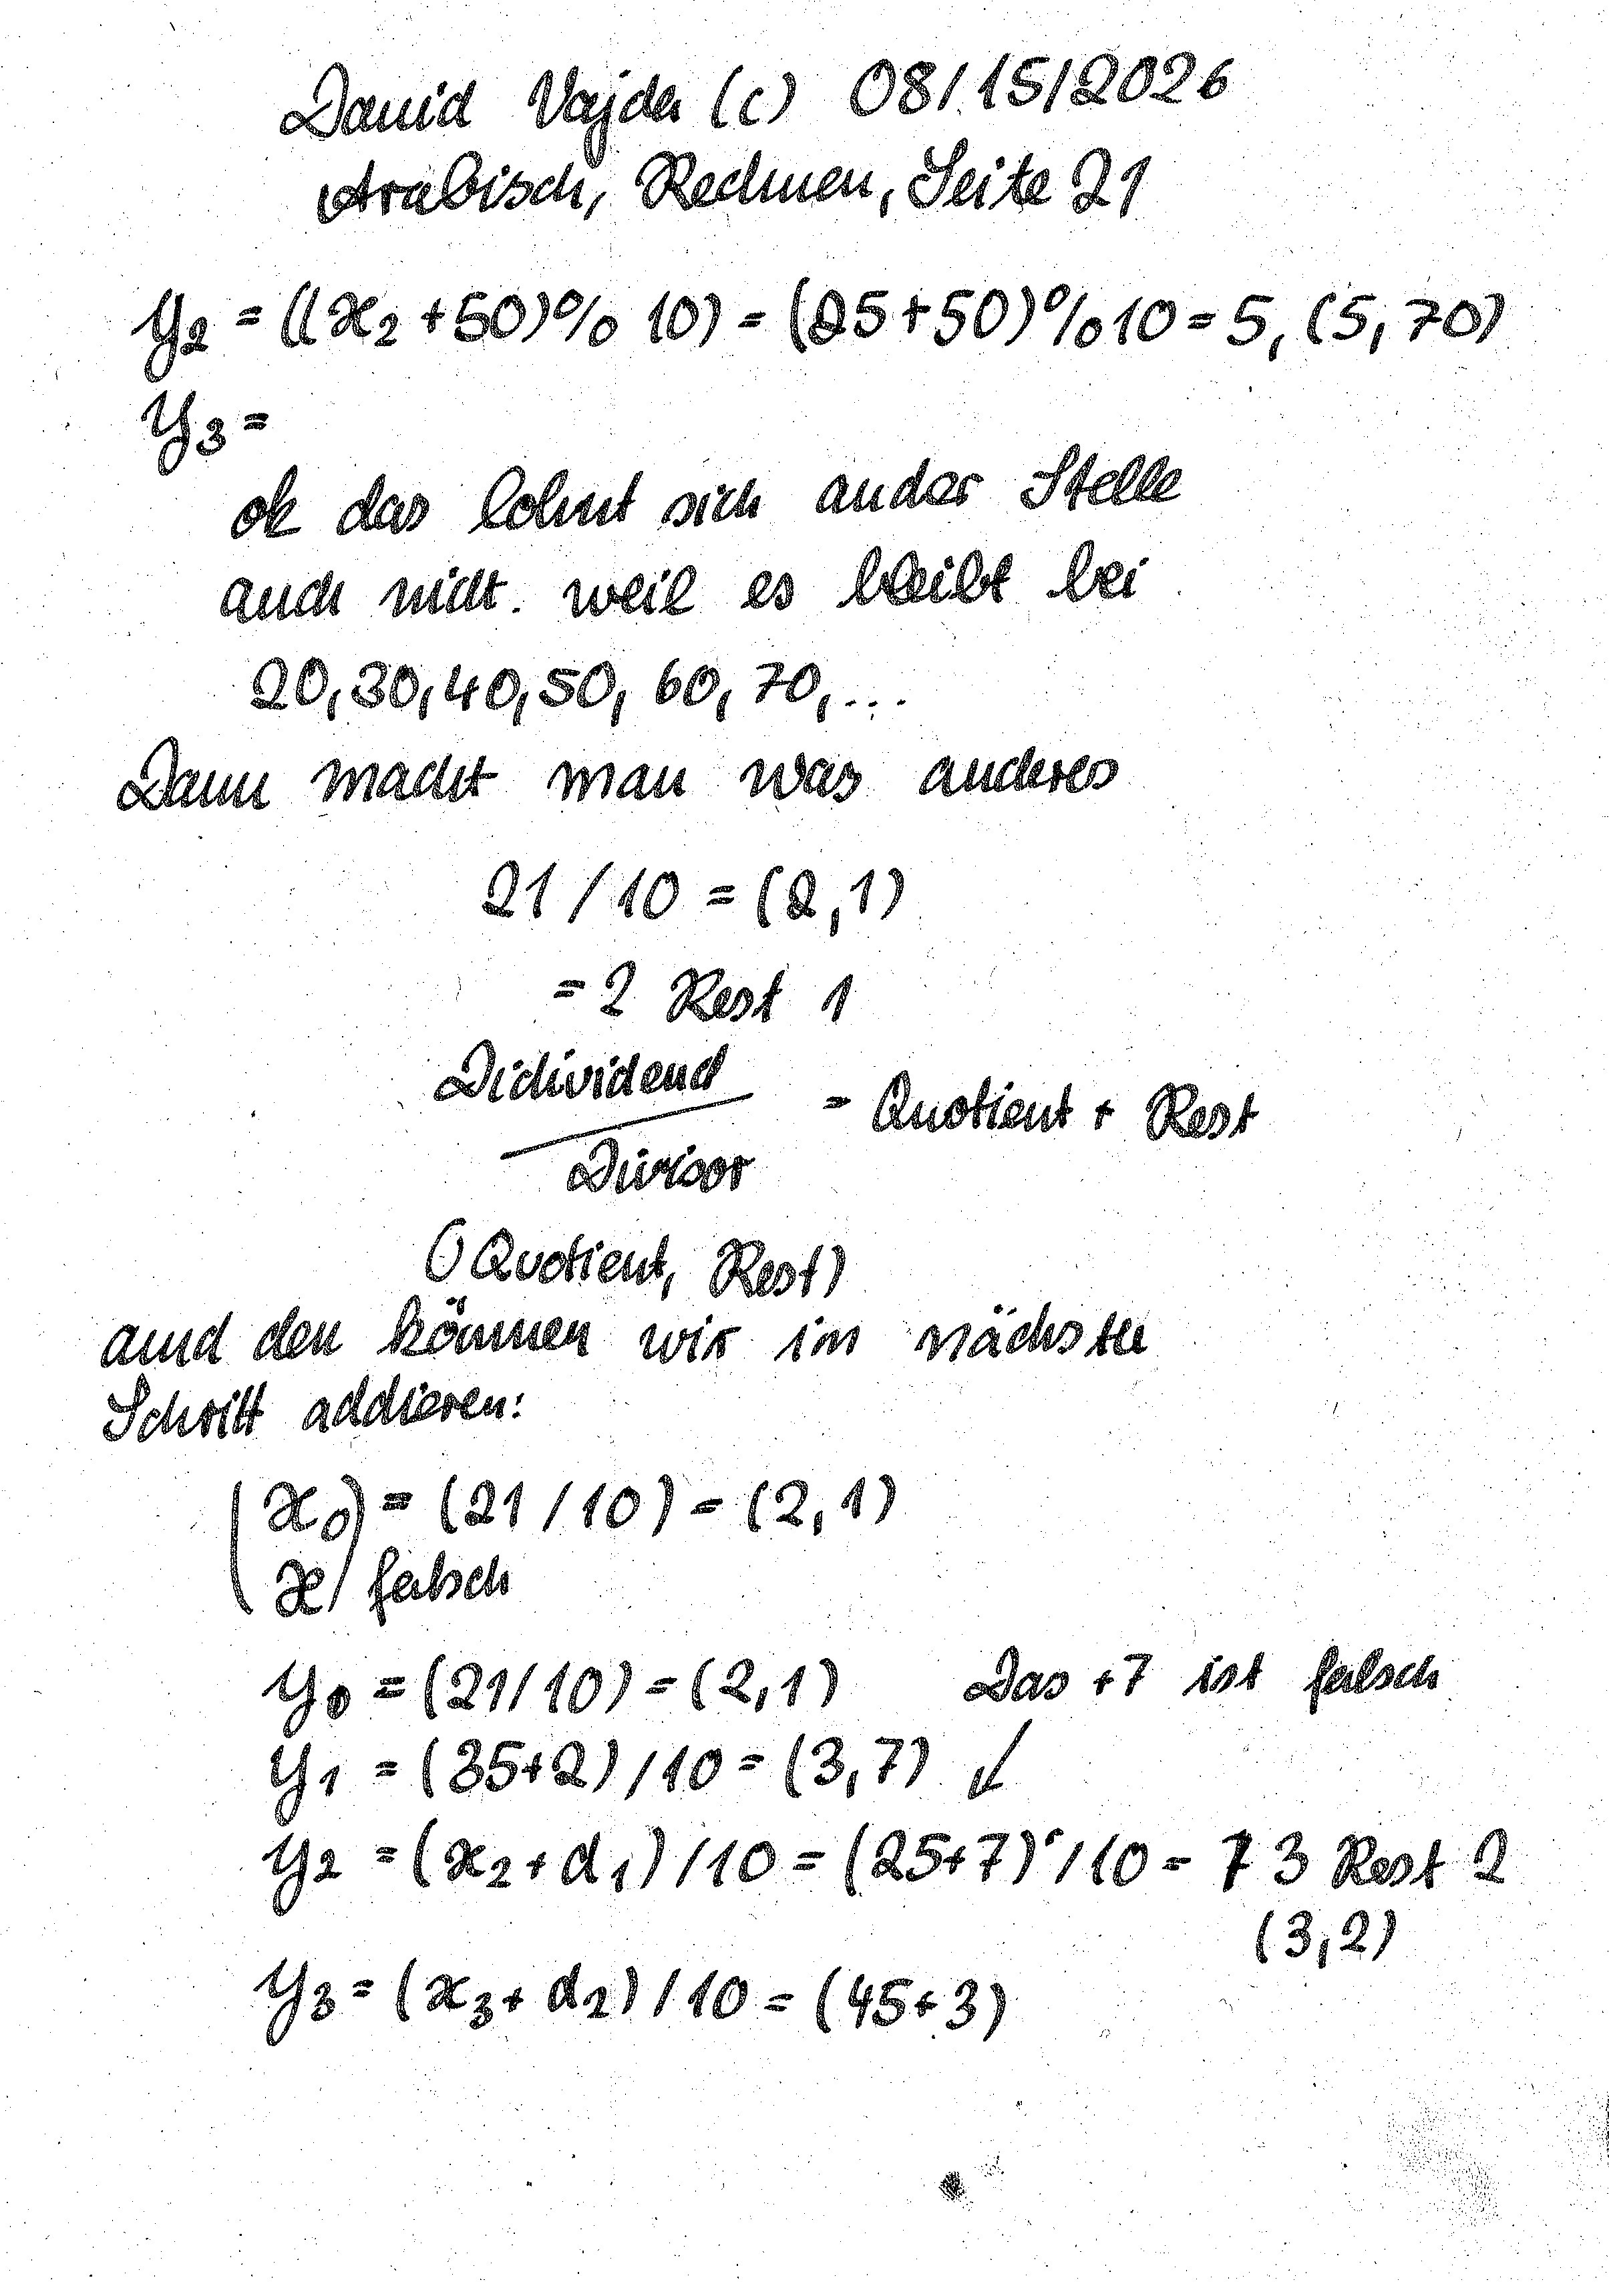 David Vajda (c) 08/15/2026
Arabisch, Rechnen, Seite 21
y2 = ((x2 + 50)% 10) = (25+50)%10 = 5, (5, 70)
y3 =
ok das lohnt sich an der Stelle
auch nicht. weil es bleibt bei
20, 30, 40, 50, 60, 70, ...
Dann macht man was anderes
21 / 10 = (2, 1)
= 2 Rest 1
Didividend
= Quotient + Rest
Divisor
(Quotient, Rest)
und den können wir im nächsten
Schritt addieren:
(x0) = (21 / 10) = (2, 1)
x falsch
y0 = (21/10) = (2, 1) Das +7 ist falsch
y1 = (35+2) / 10 = (3, 7) ↙
y2 = (x2 + d1) / 10 = (25+7) / 10 = 7 3 Rest 2
(3, 2)
y3 = (x3 + d2) / 10 = (45 + 3)